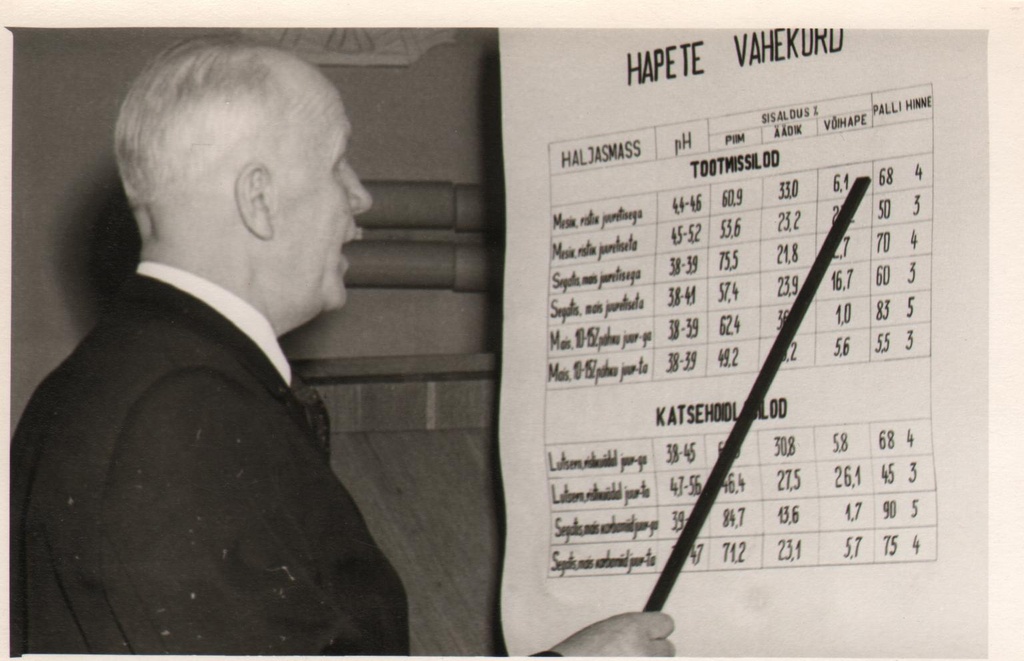 HAPETE VAHEKORD
HALJASMASS pH SISALDUS % PALLI HINNE
PIIM ÄÄDIK VÕIHAPE
TOOTMISSILOD
Mesik, ristik juuretisega 4,4-4,6 60,9 33,0 6,1 68 4
Mesik, ristik juuretiseta 4,5-5,2 53,6 23,2 50 3
Segatis, mais juuretisega 3,8-3,9 75,5 21,8 2,7 70 4
Segatis, mais juuretiseta 3,8-4,1 57,4 23,9 16,7 60 3
Mais, 10-15% põhku juur-ga 3,8-3,9 62,4 1,0 83 5
Mais, 10-15% põhku juur-ta 3,8-3,9 49,2 5,6 5,5 3
KATSEHOIDLA SILOD
Lutsern, ristikuädal juur-ga 3,8-4,5 30,8 5,8 68 4
Lutsern, ristikuädal juur-ta 4,7-5,6 46,4 27,5 26,1 45 3
Segatis, mais karbamiid juur-ga 3,9- 84,7 13,6 1,7 90 5
Segatis, mais karbamiid juur-ta 4,7 71,2 23,1 5,7 75 4